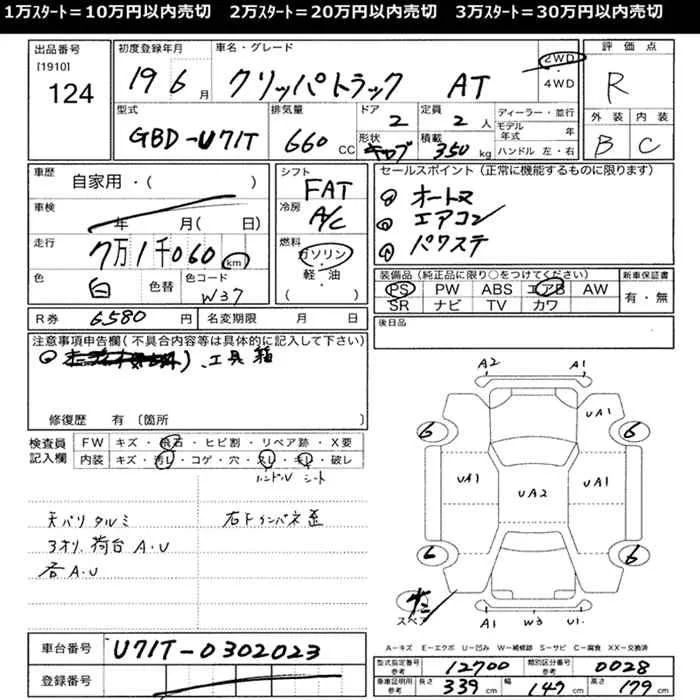 1万ｽﾀｰﾄ＝10万円以内売切　2万ｽﾀｰﾄ＝20万円以内売切　3万ｽﾀｰﾄ＝30万円以内売切
出品番号
[1910]
124
初度登録年月
19 6 月
車名・グレード
クリッパトラック AT
2WD
・
4WD
評価点
R
外装 内装
B C
型式
GBD-U71T
排気量
660 CC
ドア
2
定員
2 人
形状
キャブ
積載
350 kg
ディーラー・並行
モデル年式 年
ハンドル 左・右
車歴
自家用・( )
シフト
FAT
車検
年 月( 日)
冷房
A/C
走行
7万1千060 km
燃料
ガソリン
・
軽・油
( )
色
白 色替
色コード
W37
R券 6,580 円 名変期限 月 日
セールスポイント(正常に機能するものに限ります)
オートマ
エアコン
パワステ
装備品(純正品に限り○をつけてください)
PS PW ABS エアB AW
SR ナビ TV カワ
新車保証書
有・無
後日品
注意事項申告欄(不具合内容等は具体的に記入して下さい)
工具箱
修復歴 有〔箇所 〕
検査員
記入欄
FW キズ・飛石・ヒビ割・リペア跡・X要
内装 キズ・汚レ・コゲ・穴・スレ・キレ・破レ
ハンドル シート
天バリタルミ
3オリ、荷台A.U
各A.U
右Fインパネ歪
A2 A1
UA1
6 6
UA1 UA2 UA1
6 6
スペア
A1 W3 U1
A－キズ E－エクボ U－凹み W－補修跡 S－サビ C－腐食 XX－交換済
車台番号 U71T-0302023
登録番号
型式指定番号 参考 12700 類別区分番号 参考 0028
車庫証明用 参考 長さ 339 cm 幅 147 cm 高さ 179 cm